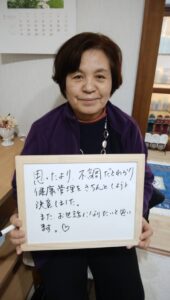 思ったより 不調だとわかり
健康管理をきちんとしようと
決意しました。
また お世話になりたいと思い
ます。♡